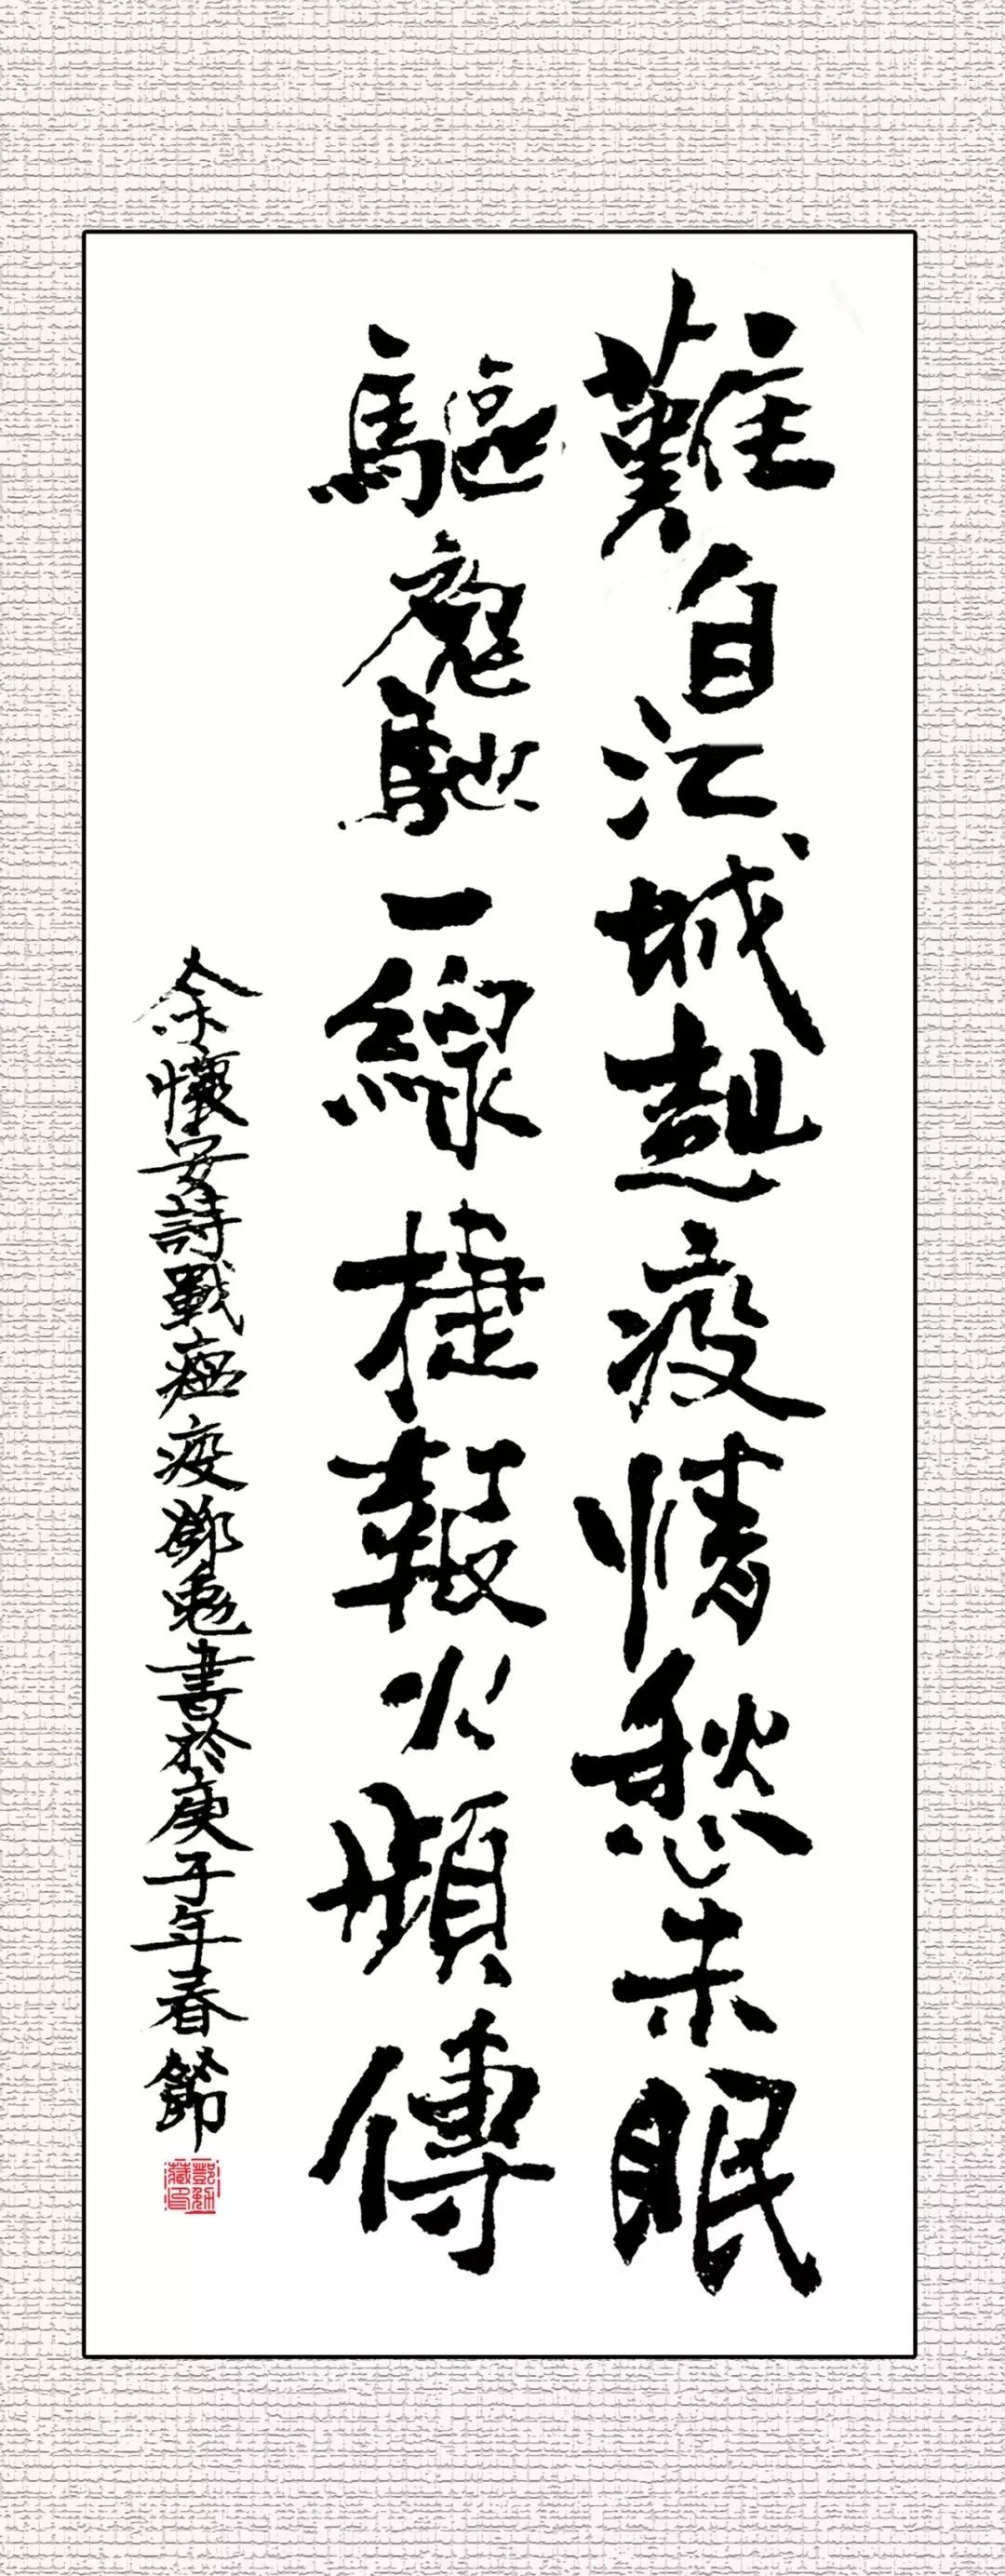 難自江城起疫情愁未眠
驅魔馳一線捷報火頻傳
余懷安詩戰瘟疫鄧兔書於庚子年春節